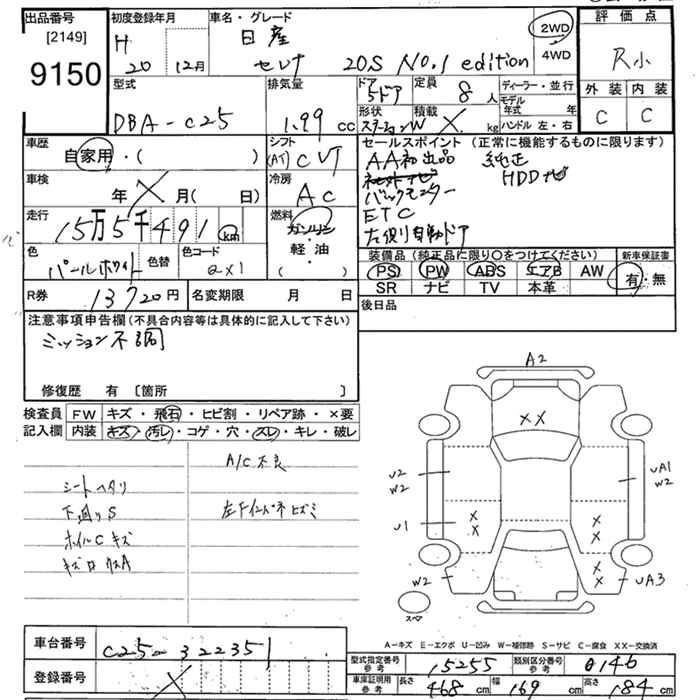 出品番号 初度登録年月 車名・グレード 評価点
[2149] H 日産 2WD R小
9150 20 12月 セレナ 20S No.1 edition 4WD
型式 排気量 ドア 定員 ディーラー・並行 外装 内装
DBA-C25 1.99 cc 5ドア 8人 モデル年式 年 C C
形状 積載 ハンドル 左・右
ステーションW × kg
車歴 シフト セールスポイント (正常に機能するものに限ります)
自家用・( ) (AT) CVT AA初出品 純正
車検 冷房 HDDナビ
年 × 月( 日) AC バックモニター
走行 燃料 ETC
15万5千491 km ガソリン 左後り自動ドア
色 色替 色コード 軽・油 装備品 (純正品に限り○をつけてください) 新車保証書
パールホワイト QX1 ( ) PS PW ABS エアB AW 有・無
R券 13720円 名変期限 月 日 SR ナビ TV 本革
後日品
注意事項申告欄(不具合内容等は具体的に記入して下さい)
ミッション不調
修復歴 有 〔箇所 〕
検査員 FW キズ・飛石・ヒビ割・リペア跡・×要
記入欄 内装 キズ・汚レ・コゲ・穴・スレ・キレ・破レ
A/C不良
シートヘタリ
下廻りS
ホイルCキズ
A2
XX
U2
W2
UA1
W2
U1
X
X
X
X
W2
X
X
UA3
スペア
A-キズ E-エクボ U-凹み W-補修跡 S-サビ C-腐食 XX-交換済
車台番号 C25-322351
登録番号 ×
型式指定番号 参考 15255 類別区分番号 参考 0146
車庫証明用 参考 長さ 468 cm 幅 169 cm 高さ 184 cm